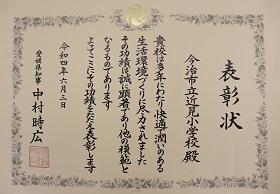 表彰状
今治市立近見小学校殿
貴校は多年にわたり快適で潤いのある
生活環境づくりに尽力されました
その功績は誠に顕著であり他の模範と
なるものであります
よってここにその功績をたたえ表彰します
令和四年六月三日
愛媛県知事 中村時広